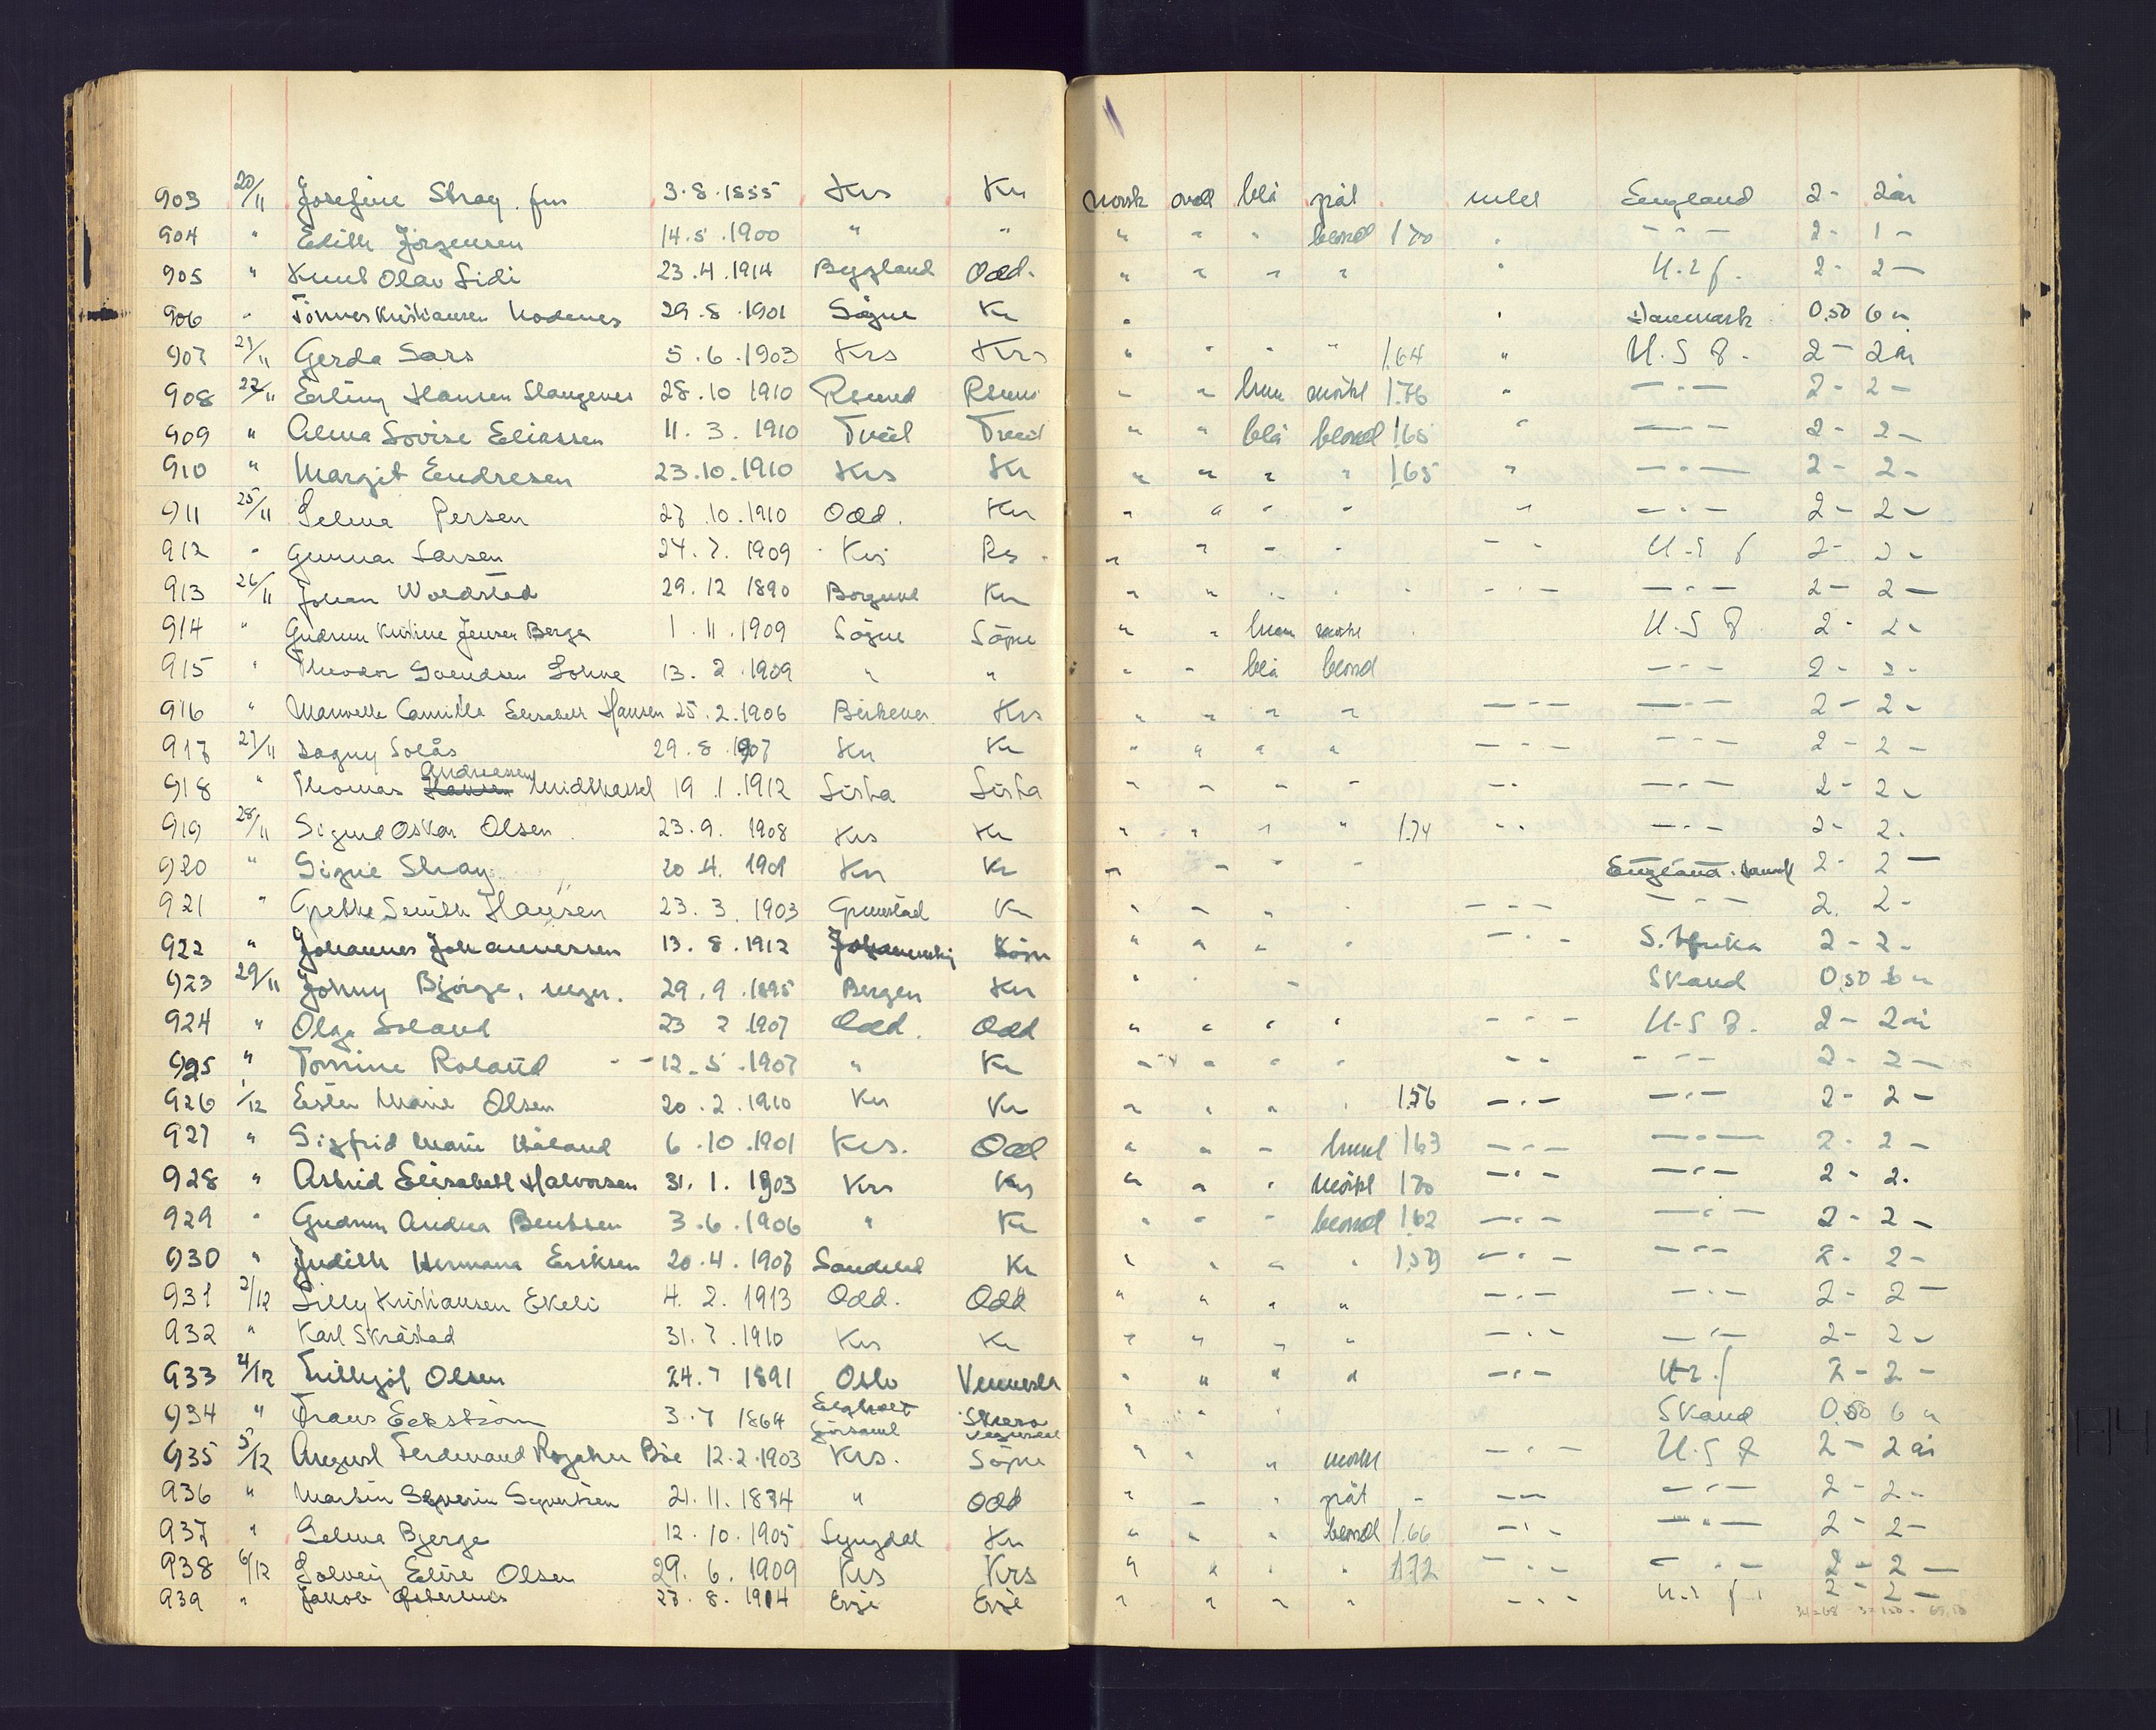 903 20/11 Josefine Stray, fru 3.8.1855 Krs Kr norsk oval blå grå England 2- 2 år
904 " Edith Jörgensen 14.5.1900 " " " " " blond 1.70 " -"- 2- 1-
905 " Knut Olav Lidi 23.4.1914 Bygland Odd. " " " " " 2- 2-
906 " Tönnes Kristiansen 29.8.1901 Sögne Kr " " Danmark 0,50 6 "
907 21/11 Gerda Sars 5.6.1903 Krs Krs " " " " 1.64 " U.S.A. 2- 2 år
908 22/11 Erling Hansen Slangenes 28.10 1910 " " brun mörkt 1.76 " -"- 2- 2-
909 " Alma Lovise Eliassen 11.3.1910 Tveit Tveit " " blå blond 1.65 " -"- 2- 2-
910 " Margit Endresen 23.10.1910 Krs Kr " " " " 1.65 " -"- 2- 2-
911 25/11 Selma Persen 27.10.1910 Odd. Kr " " " " " -"- 2- 2-
912 " Gunnar Larsen 24.7.1909 Krs " " " " -"- 2- 2-
913 26/11 Johan Woldstad 29.12 1890 Borgund Kr " " " " " -"- -"- 2- 2-
914 " Gudrun Kristine Jensen Berge 1.11.1909 Sögne Sögne " " brun mörkt U.S.A 2- 2-
915 " Theodor Svendsen Lohne 13.2.1909 " " " " blå blond -"- 2- 2-
916 " Camilla Elisabeth Hansen 25.2.1906 Birkenes Krs " " " " -"- -"- 2- 2-
917 27/11 Dagny Solås 29.8.1907 Kr Kr " " " " -"- -"- 2- 2-
918 " Thomas Andreassen Midthassel 19.1.1912 Lista Lista " " " " -"- -"- 2- 2-
919 28/11 Sigurd Oskar Olsen 23.9.1908 Krs Kr " " " " 1.74 " -"- 2- 2-
920 " Signe Stray 20.4.1901 Kr Kr " " " " England. 2- 2-
921 " Grethe Smith Hansen 23.3.1903 Grimstad Kr " " " " -"- -"- 2. 2-
922 " Johannes Johannessen 13.8.1912 " " " " -"- S. Afrika 2- 2-
923 29/11 Johnny Bjørge, 29.9.1895 Bergen Kr " " " Skand 0,50 6 "
924 " Olga Soland 23 2.1907 Odd. Odd " " " " -"- U.S.A. 2- 2 år
925 " Tomine Roland 12.5.1907 " Kr " " " " -"- -"- 2- 2-
926 1/12 Ester Marie Olsen 20.2.1910 Kr Kr " " " " 1.56 -"- -"- 2- 2-
927 " Sigfrid Marie Håland 6.10.1901 Krs. Odd " " " brunt 1.63 -"- -"- 2- 2-
928 " Astrid Elisabeth Halvorsen 31.1.1903 Krs Krs " " " mörkt 1.70 -"- -"- 2- 2-
929 " Gudrun Andrea Bentsen 3.6.1906 " Kr " " " blond 1.62 -"- -"- 2- 2-
930 " Judith Hermana Eriksen 20.4.1907 Kr " " " " 1.59 -"- -"- 2- 2-
931 3/12 Lilly Kristiansen Ekeli 4.2.1913 Odd. Odd " " " " -"- -"- 2- 2-
932 " Karl Skråstad 31.7.1910 Krs Kr " " " " -"- -"- 2- 2-
933 4/12 Olsen 24.7 1891 Oslo Vennesla " " " " -"- 2- 2-
934 " Frans Eckström 3.7 1864 " " " Skand 0,50 6 "
935 5/12 August Ferdinand Böe 12.2.1903 Krs. Sögne " " " mörkt -"- U.S.A 2- 2 år
936 " Martin Severin Syvertsen 21.11.1874 " Odd " " " grå -"- -"- 2- 2-
937 " Selma Bjerge 12.10.1905 Lyngdal Kr " " " blond 1.66 -"- -"- 2- 2-
938 6/12 Solveig Elise Olsen 29.6.1909 Krs Krs " " " " 1.72 -"- -"- 2- 2-
939 " Jakob Österhus 27.8.1914 Evje Evje " " " " -"- 2- 2-